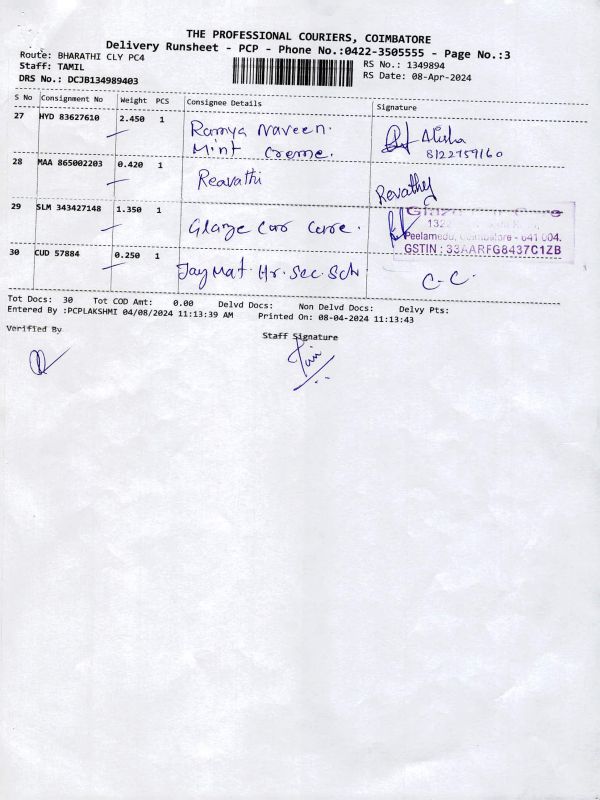 THE PROFESSIONAL COURIERS, COIMBATORE
Delivery Runsheet - PCP - Phone No.:0422-3505555 - Page No.:3
Route: BHARATHI CLY PC4
RS No.: 1349894
Staff: TAMIL
RS Date: 08-Apr-2024
DRS No.: DCJB134989403
S No Consignment No Weight PCS Consignee Details Signature
27 HYD 83627610 2.450 1 Ramya Naveen. Alisha
Mint Creme. 8122759160
28 MAA 865002203 0.420 1 Reavathi Revathy
29 SLM 343427148 1.350 1 Glaze Care
132
Peelamedu, Coimbatore - 641 004.
GSTIN : 33AARFG8437C1ZB
30 CUD 57884 0.250 1 JayMat. Hr. Sec. Sch C-C.
Tot Docs: 30 Tot COD Amt: 0.00 Delvd Docs: Non Delvd Docs: Delvy Pts:
Entered By :PCPLAKSHMI 04/08/2024 11:13:39 AM Printed On: 08-04-2024 11:13:43
Verified By
Staff Signature